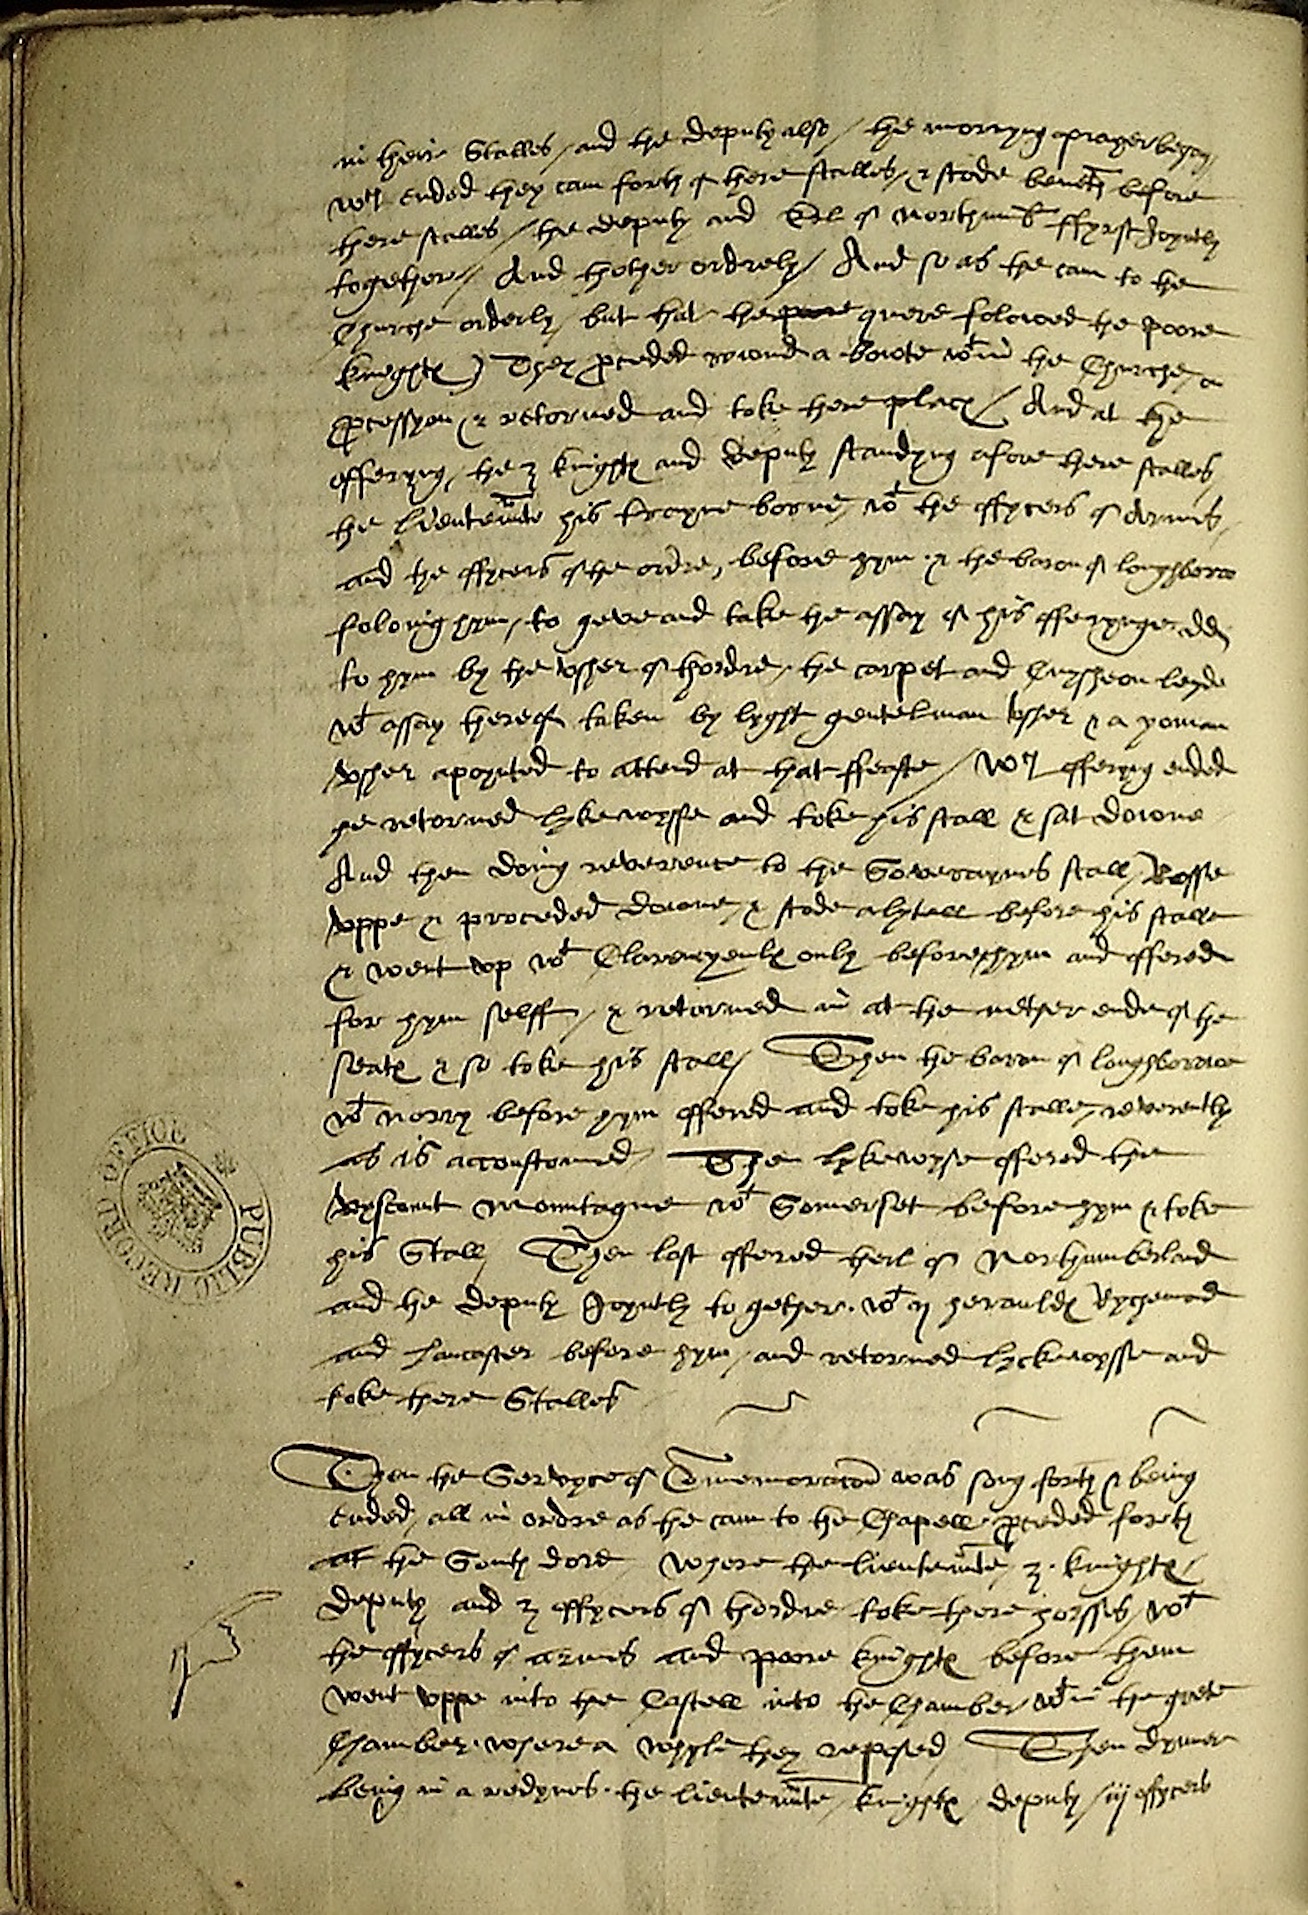 in theire Stalles / and the deputy also / the mornyng prayer begon /
wch ended they cam forth of there stalles / & stode beneth before
there stalles / the deputy and Erl of northumb ffyrst Joyntly
together / And thother ordrely / And so as the cam to the
Churche orderly / but that the poore quere folowed the poore
knyghtes ) They proceded rownd a bowte wt in the Churche / in
processyon & retorned and toke there places / And at the
offeryng / the 3 knyghtes and deputy standyng afore there stalles
the lieutennte his trayne borne / wt the offycers of armes /
and the offycers of the ordre, before hym & the baron of loughborow
folowing hym / to geve and take the assay of his offerynge dd
to hym by the vsher of thordre / the carpet and Cuysheon leyde
wt assay thereof taken by lyght gentelman vsher & a yoman
vsher apoynted to attend at that ffeaste / Wch offeryng ended
he retorned lykewysse and toke his stall & sat downe
And then doing reverence to the Soveraynes stall / Rosse
vppe & proceded downe & stode a lytell before his stalle
& went vp wt Clarencyeulx only before hym and offered
for hym selff / & retorned in at the nether ende of the
seates & so toke his stall / Then the baron of loughborow
wt norry before hym offered and toke his stalle / reverently
as is accoustomed / Then lykewyse offered the
Vyscont Mountague wt Somerset before hym & toke
his Stall / Then last offered therl of Northumberland
and the deputy Joyntly together . wt ij herauldes Rychemond
and Lancaster before hym / and retorned lyckewysse and
toke there Stalles
Then the Servyce of Comemoracon was song forth & being
Ended / all in ordre as the cam to the Chapell proceded forth
at the South dore / where the lieutennte / 3 . knyghtes /
deputy and 3 offycers of thordre toke there horsses / wt
the offycers of armes and poore knyghtes before them
went vppe into the Castell into the Chamber wt in the grete
Chamber . where a whyle they reposed / Then dynner
being in a redynes . the lieutennte / knyghtes / deputy / iij offycers
PUBLIC RECORD OFFICE